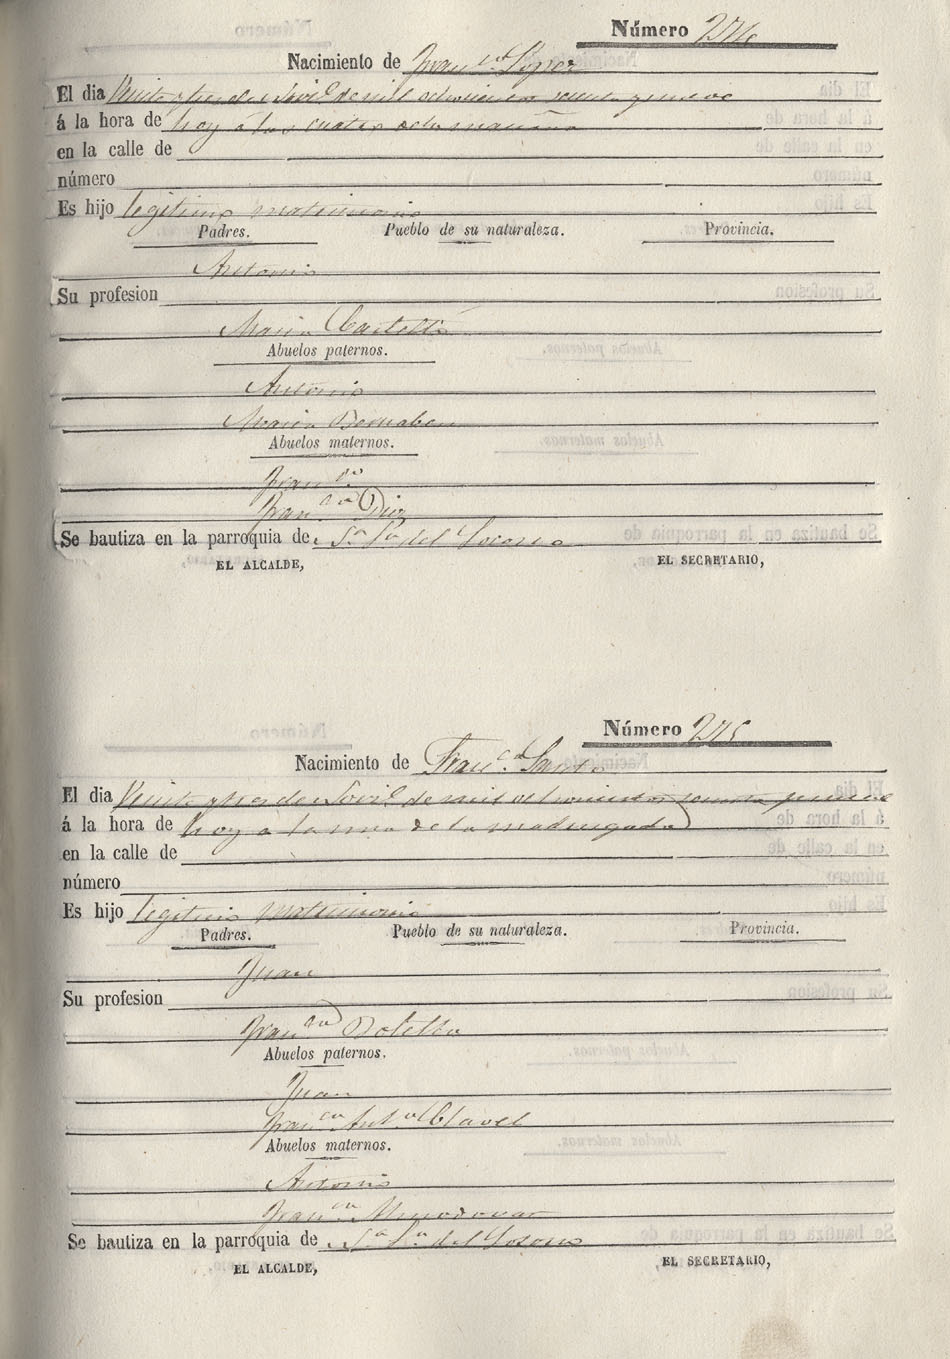 Número 274
Nacimiento de Fran.co Lopez
El dia Veinte y tres de de mil ochocientos sesenta y nueve
á la hora de hoy á las cuatro de la mañana
en la calle de
número
Es hijo legitimo matrimonio
Padres. Pueblo de su naturaleza. Provincia.
Antonio
Su profesion
Maria Castelló
Abuelos paternos.
Antonio
Maria Bernabeu
Abuelos maternos.
Fran.co
Fran.ca Diez
Se bautiza en la parroquia de N.a S.a del Socorro
EL ALCALDE, EL SECRETARIO,
Número 275
Nacimiento de Fran.ca
El dia Veinte y tres de de mil ochocientos sesenta y nueve
á la hora de hoy á la una de la madrugada
en la calle de
número
Es hijo legitimo matrimonio
Padres. Pueblo de su naturaleza. Provincia.
Juan
Su profesion
Fran.ca Botella
Abuelos paternos.
Juan
Fran.ca Ant.a Clavel
Abuelos maternos.
Antonio
Fran.ca
Se bautiza en la parroquia de N.a S.a del Socorro
EL ALCALDE, EL SECRETARIO,